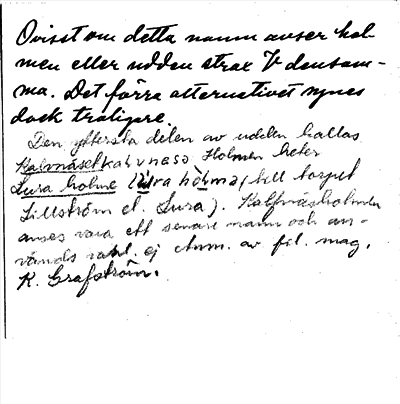 Ovisst om detta namn avser hol-
men eller udden strax V densam-
ma. Det förra alternativet synes
dock troligare.
Den yttersta delen av udden kallas
Kalvnäset kalvnesə. Holmen heter
Lura holme (lura hòlmə, till torpet
Lillström el. Lura). Kalvnäsholmen
anses vara ett senare namn och an-
vänds ej av fil. mag.
K. Grafström.